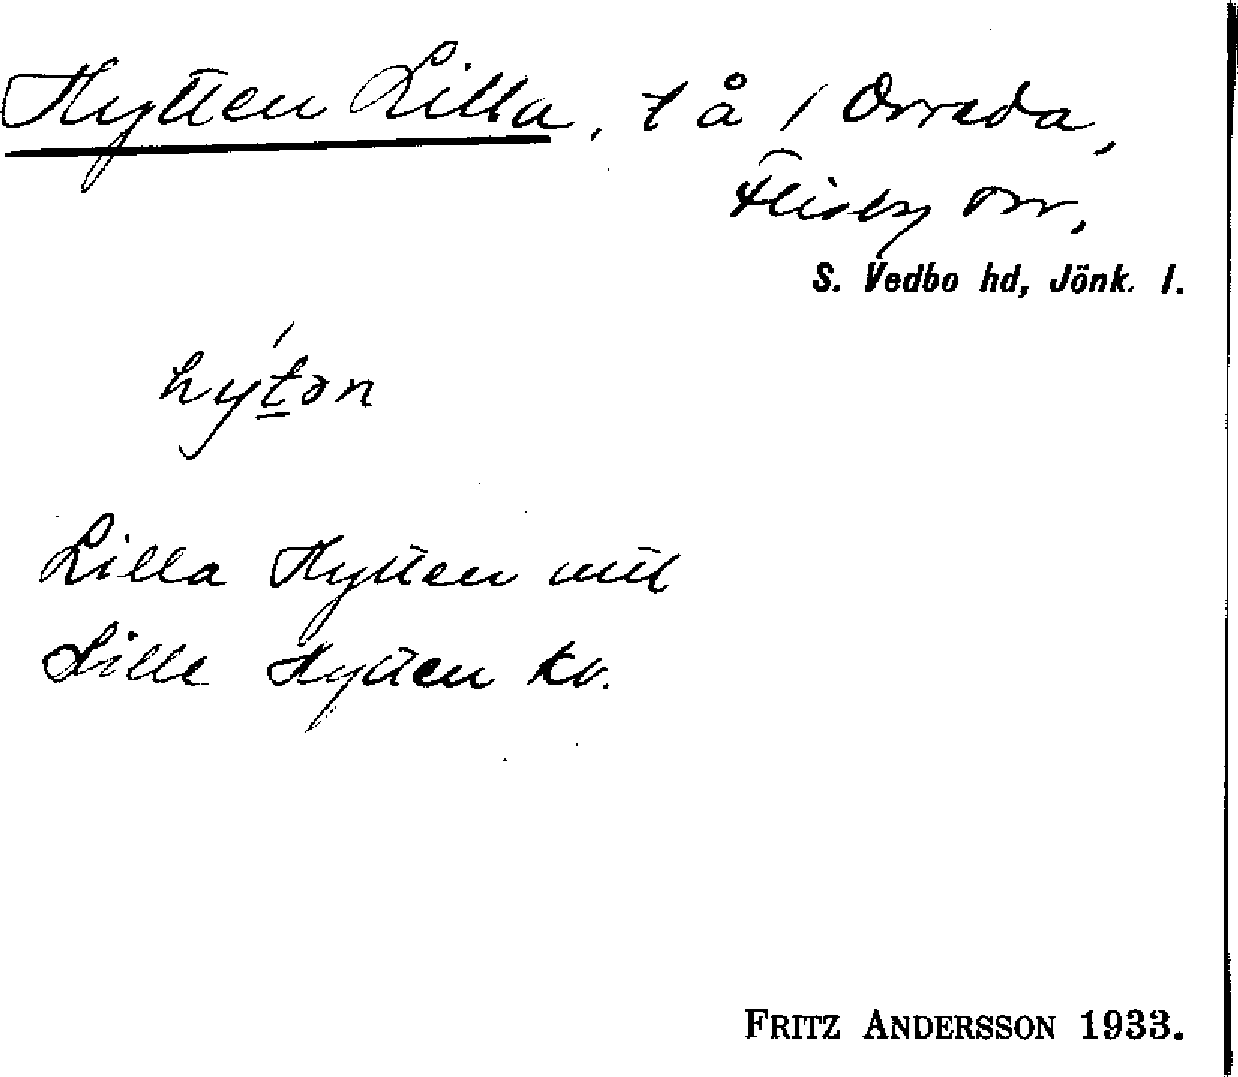 Hytten Lilla, t å / Orreda,
Flisby sn,
S. Vedbo hd, Jönk. l.
hýtən
Lilla Hytten uttl
Lille Hytten kv.
FRITZ ANDERSSON 1933.